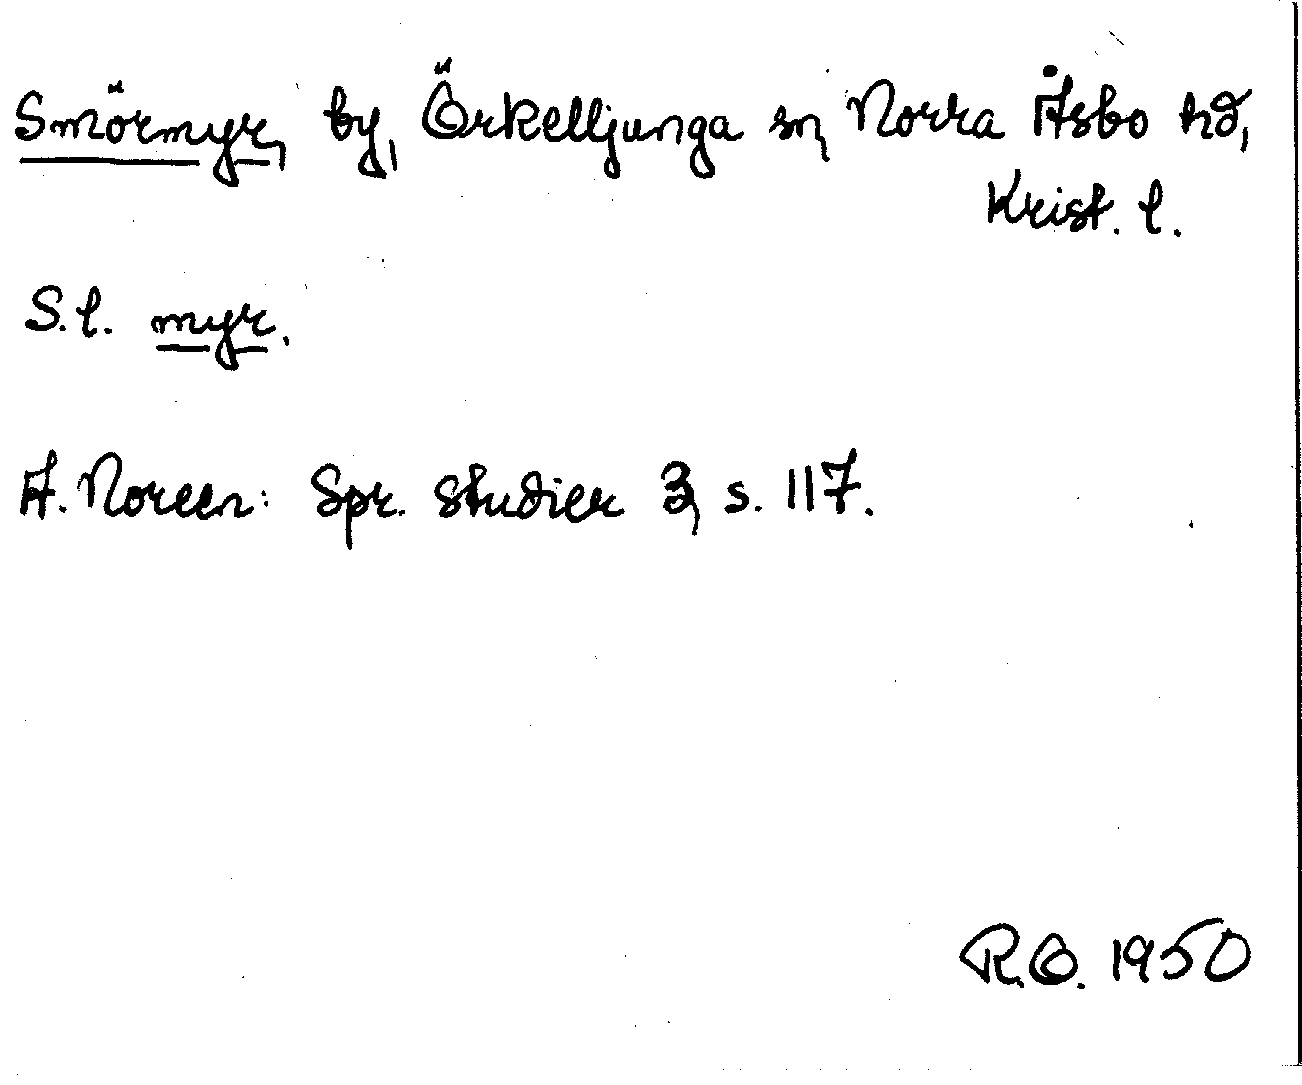 Smörmyr, by, Örkelljunga sn, Norra Åsbo hd,
Krist. l.
S.l. myr.
A. Noreen: Spr. studier 3, s. 117.
R.O. 1950